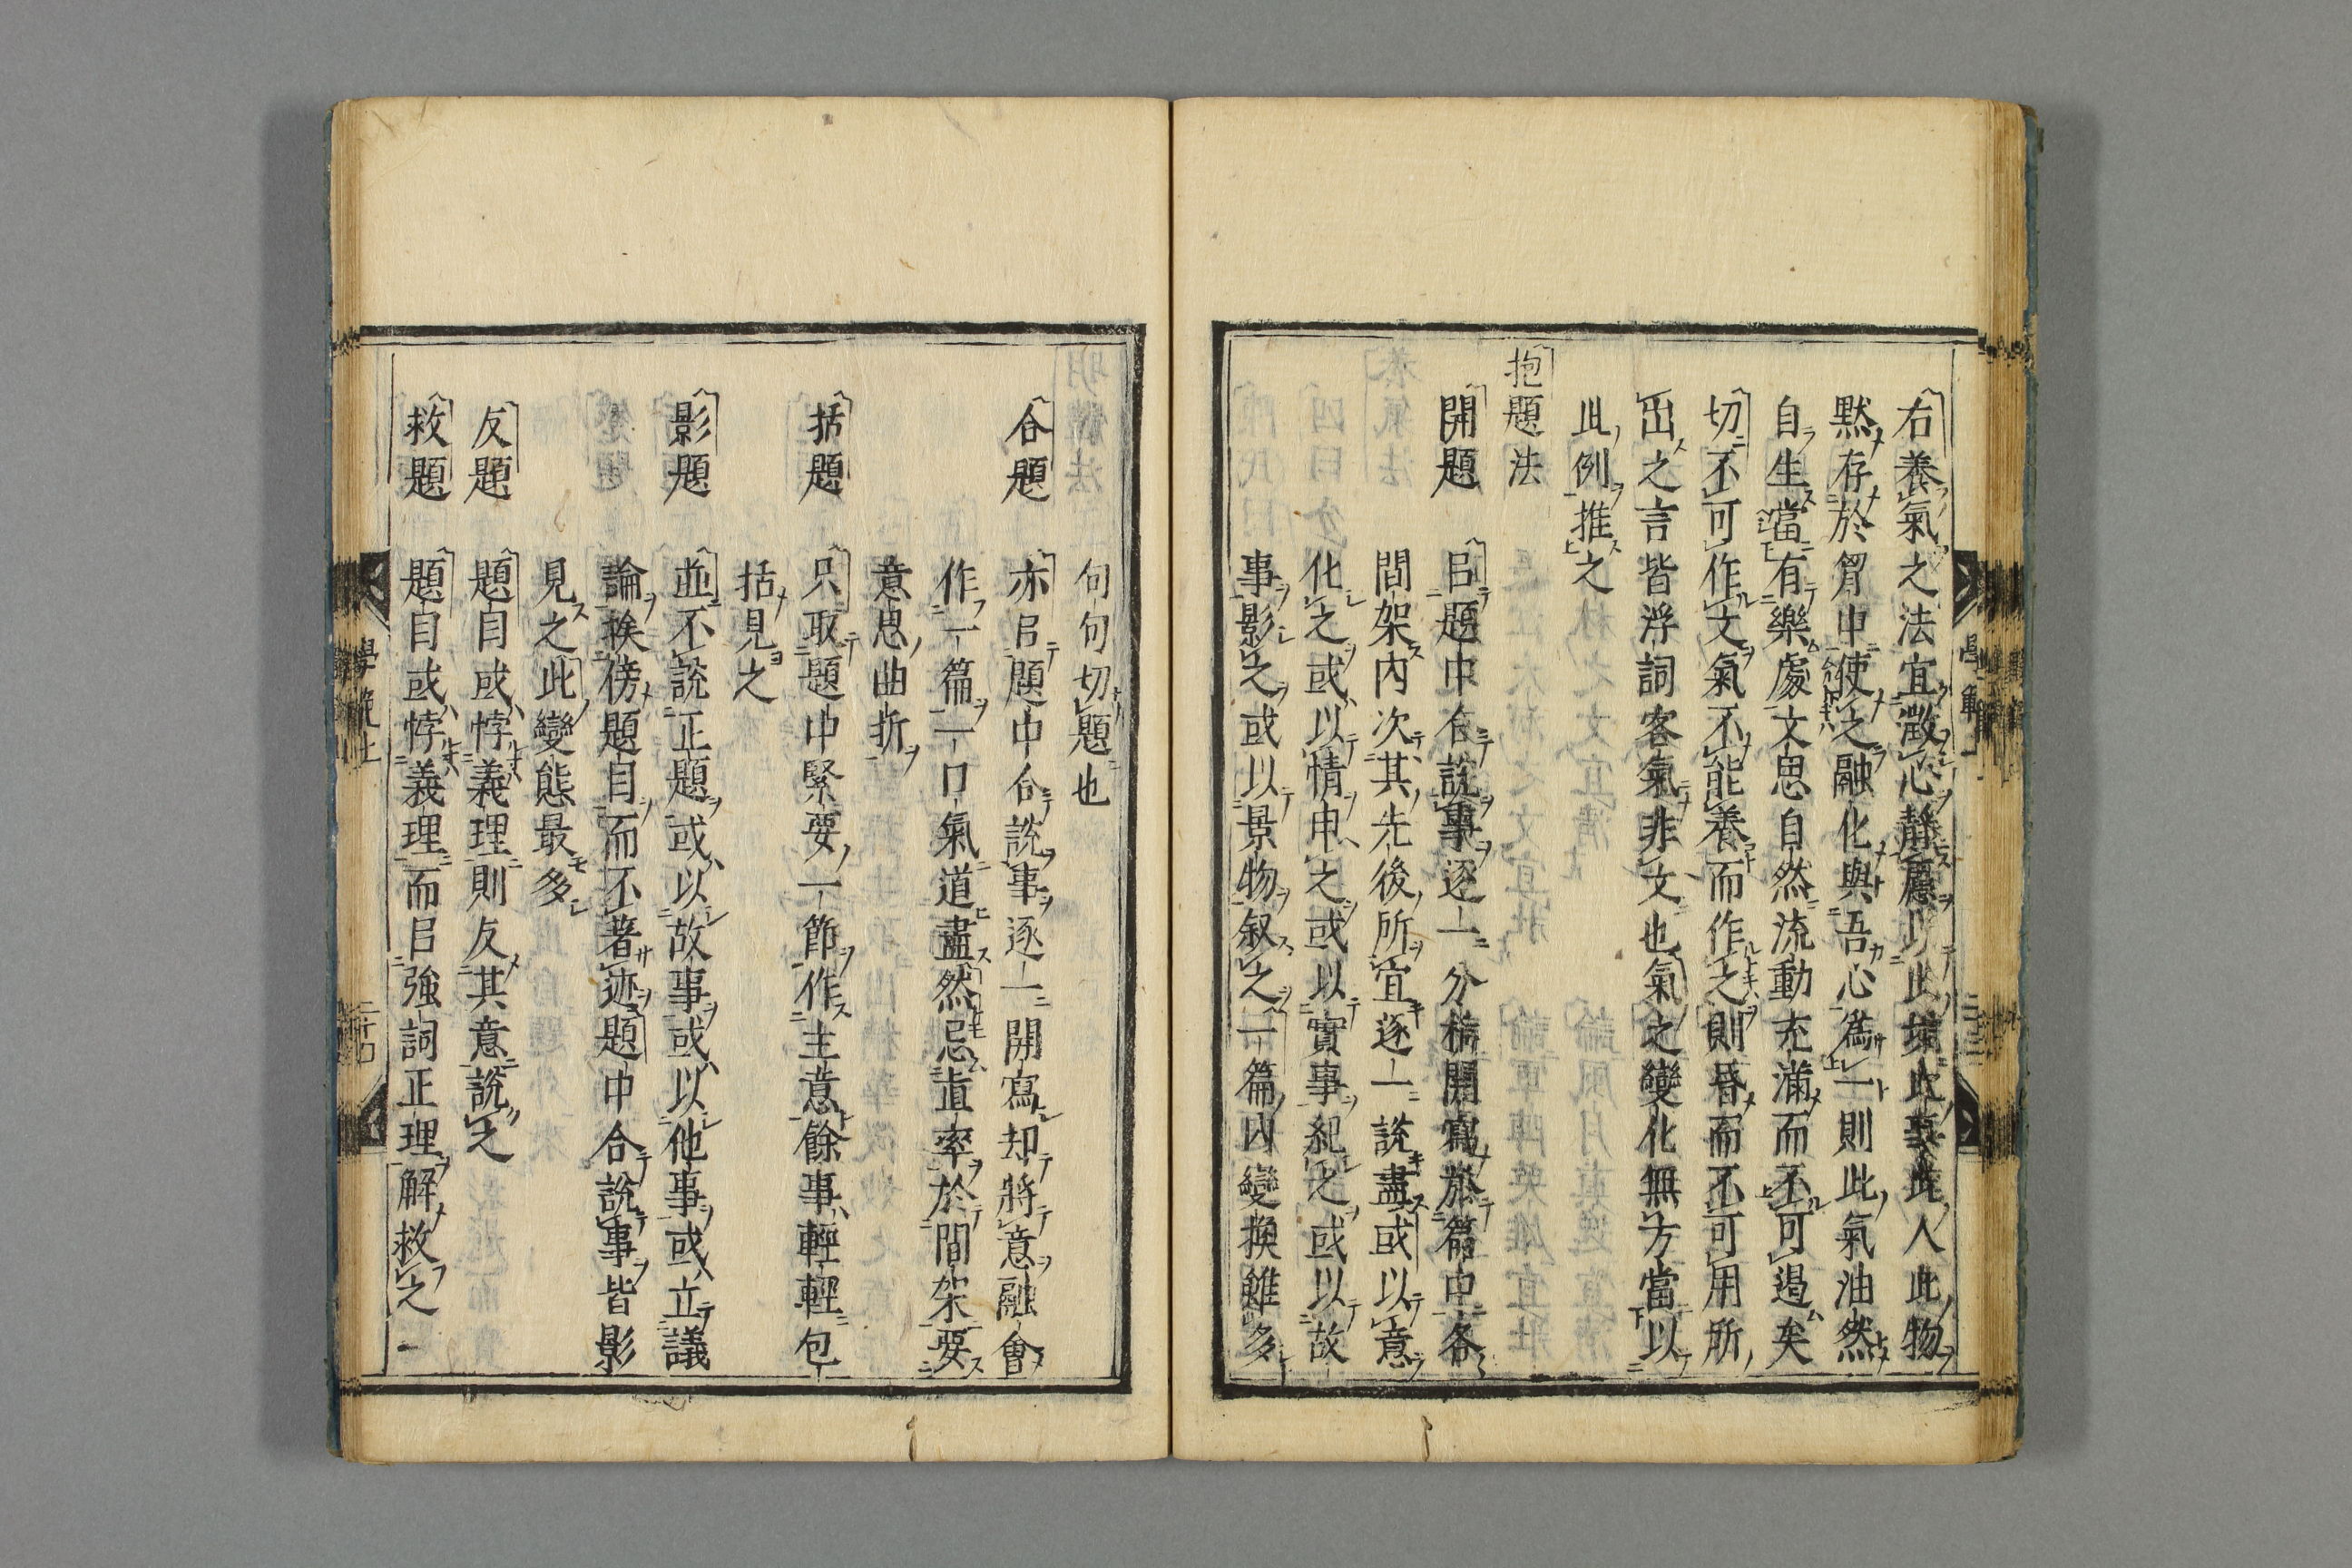 右養氣之法宜澂心靜慮以此境此事此人此物
黙存於胷中使之融化與吾心爲一則此氣油然
自生當有樂處文思自然流動充滿而不可遏矣
切不可作文氣不能養而作之則昏而不可用所
出之言皆浮詞客氣非文也氣之變化無方當以
此例推之
抱題法
開題　㠯題中合說事逐一分析開寫於篇中各
間架內次其先後所宜逐一說盡或以意
化之或以情申之或以實事紀之或以故
事影之或以景物叙之一篇内變換雖多
句句切題也
合題　亦㠯題中合說事逐一開寫却將意融會
作一篇一口氣道盡然忌直率於間架要
意思曲折
括題　只取題中緊要一節作主意餘事輕輕包
括見之
影題　並不說正題或以故事或以他事或立議
論挨傍題目而不著迹題中合說事皆影
見之此變態最多
反題　題目或悖義理則反其意說之
救題　題目或悖義理而㠯強詞正理解救之
學範上
二十四